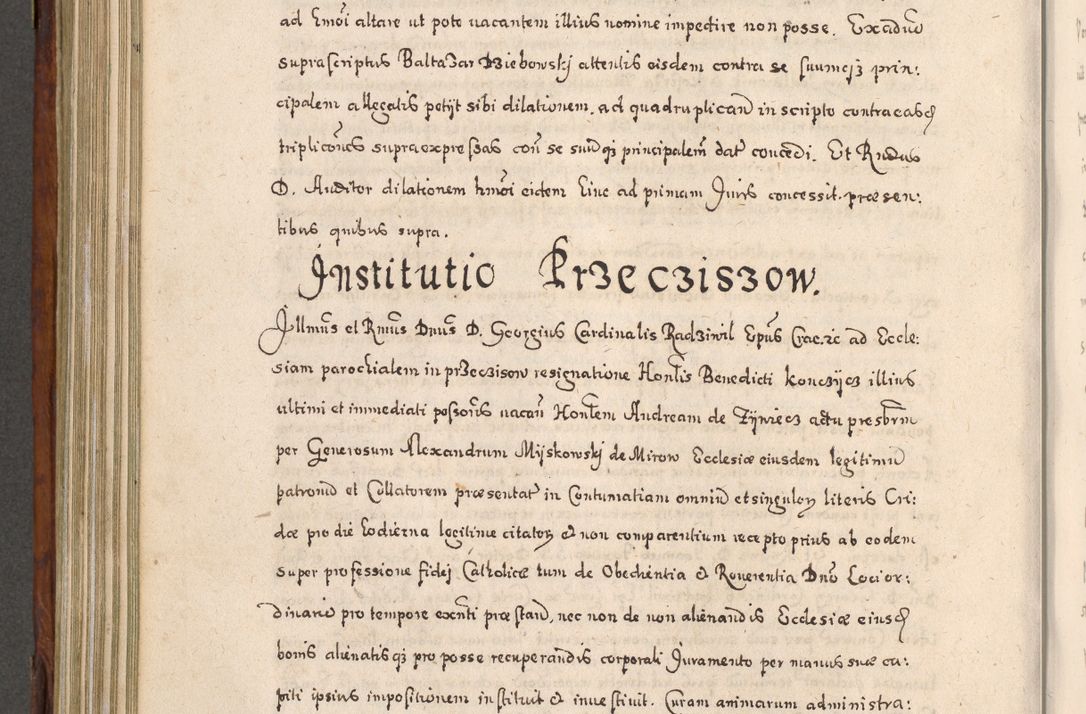 ad hmõi altare ut pote vacantem illius nomine impedire non posse. Ex adũo
suprascriptus Baltazar Dziebowskj attentis eisdem contra se suumq3 prin:
cipalem allegatis petijt sibi dilationem. ad quadruplicanđ in scripto contra easđ
triplicões supra expressas coñ se suũq3 principalem̃ dat̃ concedi. Et Rndus
D. Auditor dilationem hmõi eidem hinc ad primam Juris concessit. præsen:
tibus quibus supra.
Institutio Przecziszow.
Jllmũs et Rmũs Dnũs D. Georgius Cardinalis Radziwil Epũs Crac. 2c ad Eccle:
siam parochialem in przeczisow resignatione Honlis Benedicti konczijcz illius
ultimi et immediati possoris vacañ Honlem Andream de Zijwiecz actu presbrm
per Generosum Alexandrum Mijskowskj de Mirow Ecclesiæ eiusdem legitimũ
patronũ et Collatorem præsentat̃ in Contumatiam omniũ et singulor̃ literis Cri:
dæ pro die hodierna legitime citator̃ & non comparentium recepto prius ab eodem
super professione fidej Catholicæ tum de Obedientia & Reuerentia Dnõ Loci or:
dinario pro tempore exñti præstanđ, nec non de non alienandis Ecclesiæ eiusđ
bonis alienatisq3 pro posse recuperandis corporali Juramento per manus suæ ca:
piti ipsius impositionem instituit & inuestiuit. Curam animarum administra: